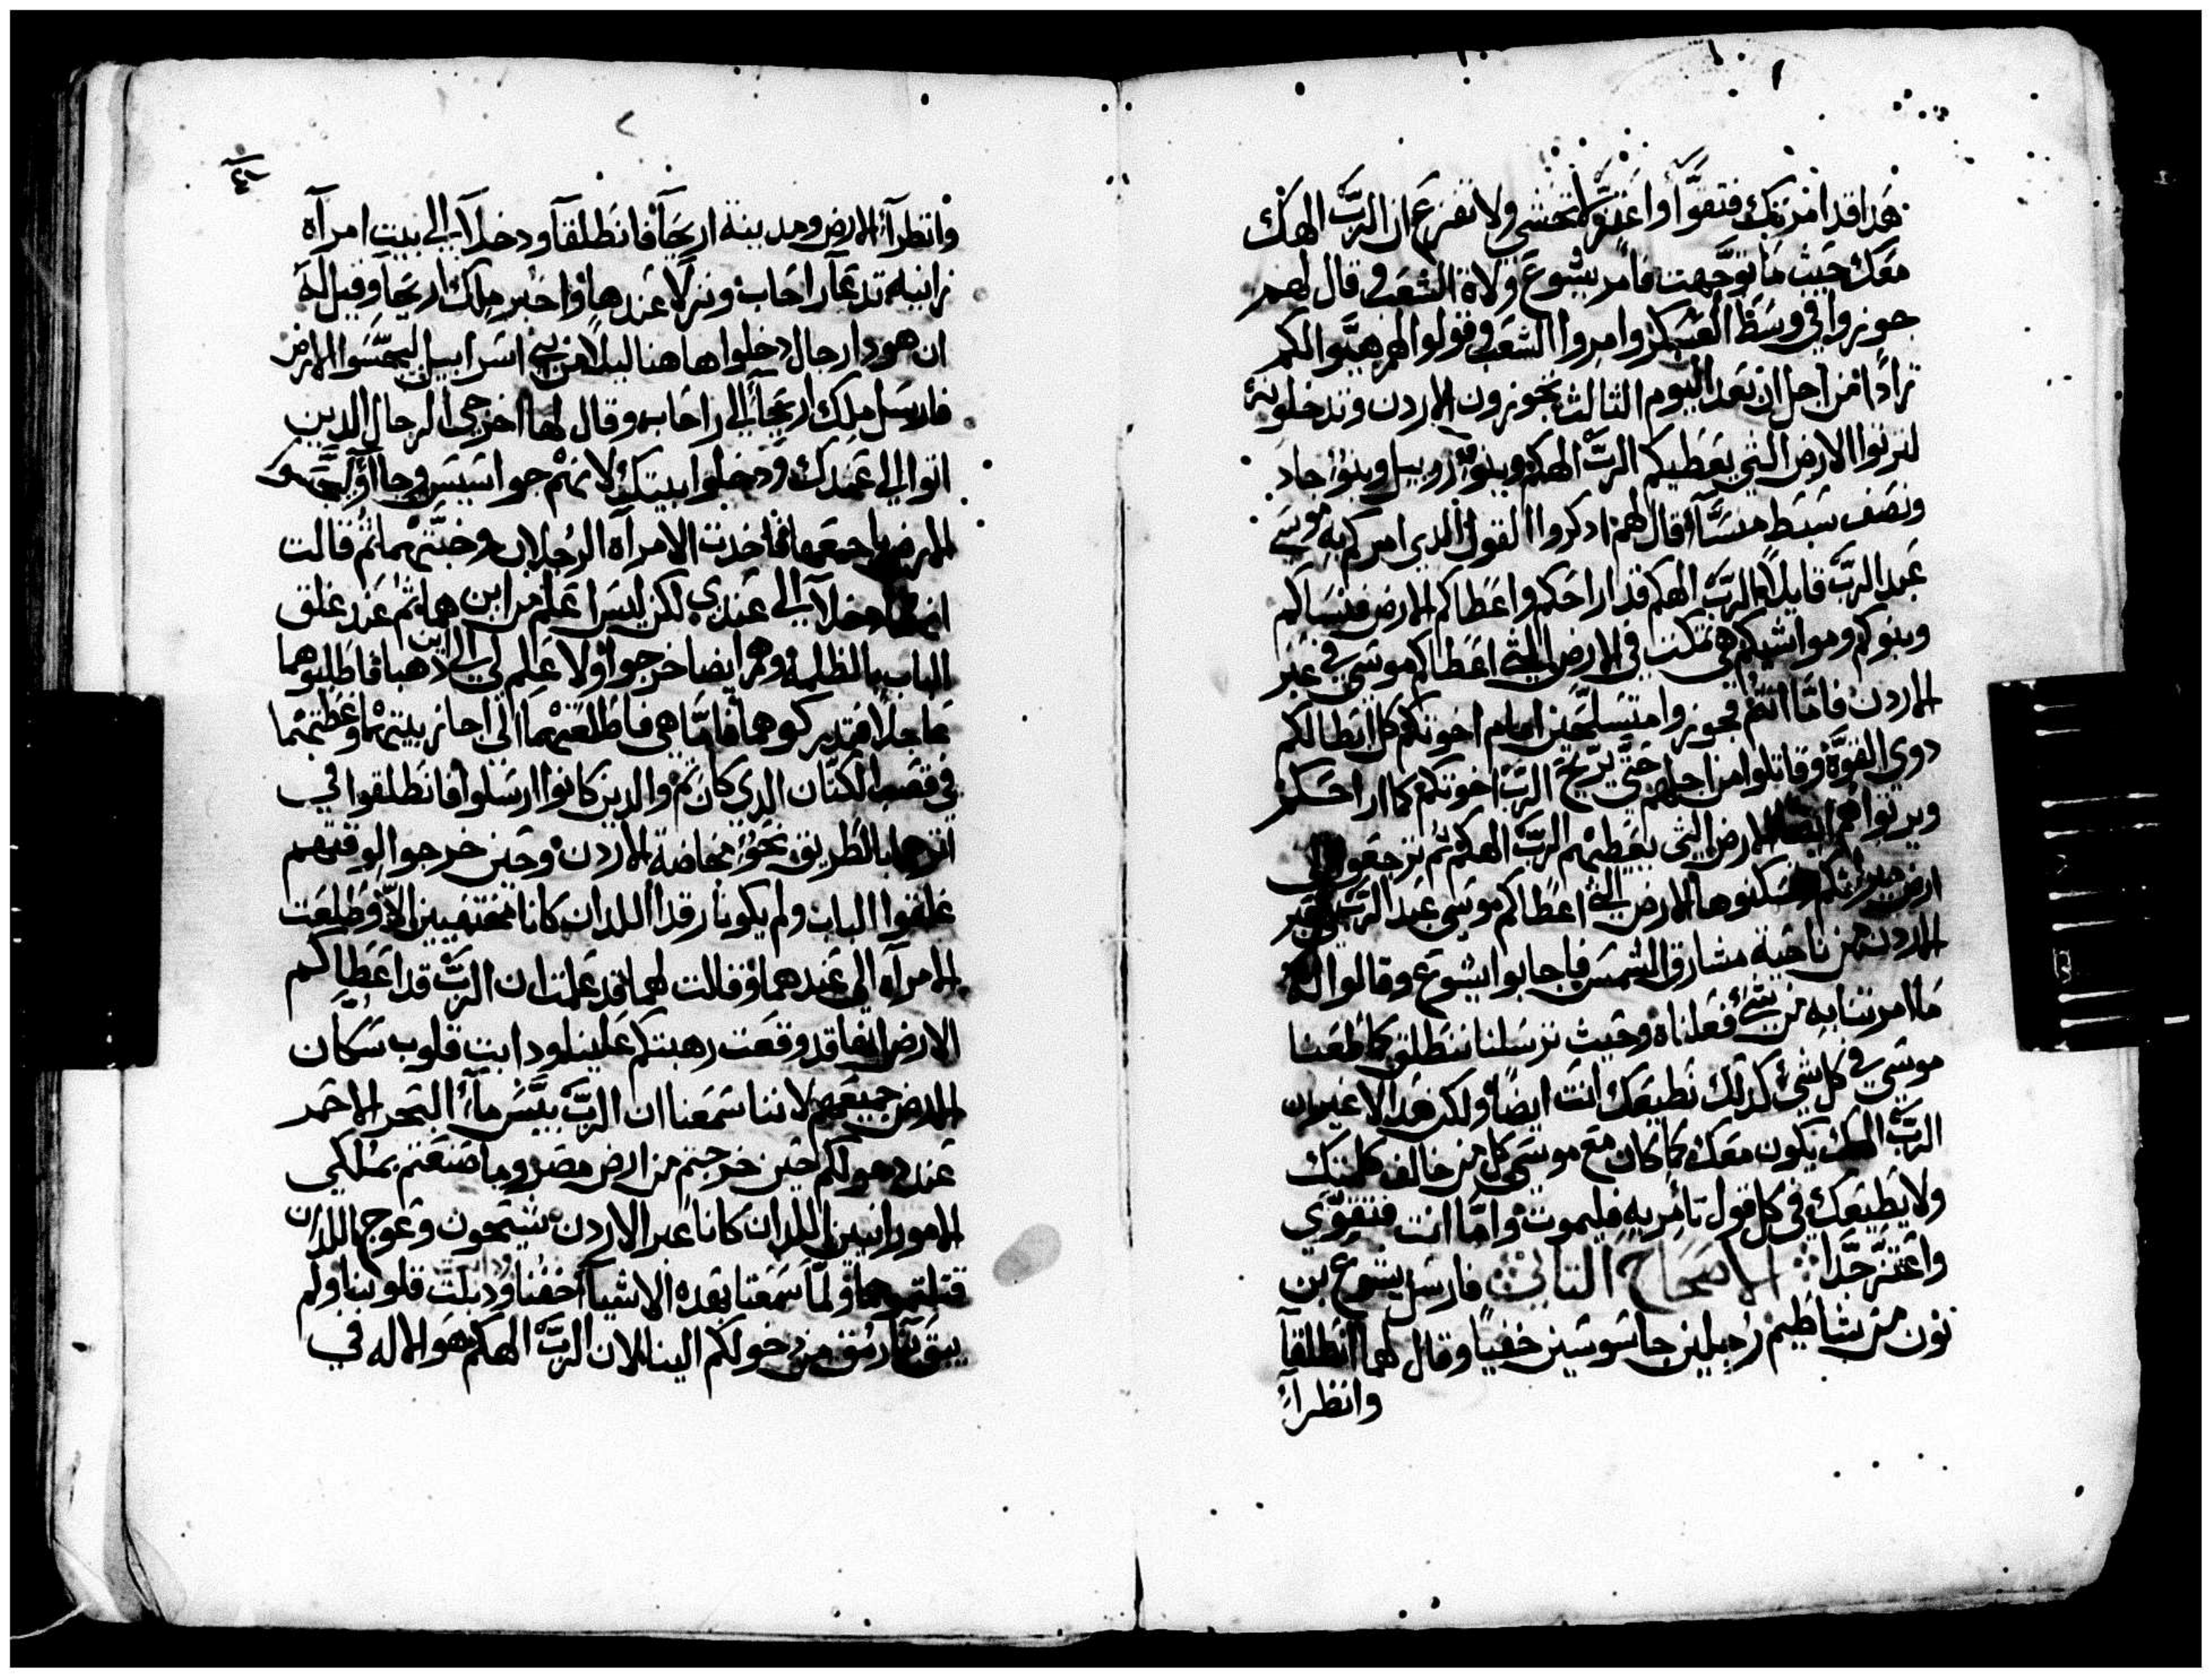 هدا قد امرتك فتقوَّا واعتزّ لا تخشي ولا تفزع ان الربَّ الهك
معك حيث ما توجهت فامر يشوع ولاة الشعب وقال لهم
جوزوا في وسط العسكر وامروا الشعب وقولوا لهم هيّوا لكم
زادًا من اجل ان بعد اليوم الثالث تجوزون الاردن وتدخلونه
لترتوا الارض التي يعطيكم الربّ الهكم وبنوا روبيل وبنوا جاد
ونصف سبط منسّا قال لهم ادكروا القول الدي امركم به موسي
عبد الربّ قايلاً الربّ الهكم قد اراحكم واعطاكم الارض فنساكم
وبنوكم ومواشيكم تمكت في الارض التي اعطاكم موسي في عبر
الاردن فامّا انتم فجوزوا متسلحين امام اخوتكم كل ابطالكم
دوي القوّة وقاتلوا من اجلهم حتّي يريّح الربّ اخوتكم كما اراحكم
ويرتوا هم ايضا الارض التي يعطيهم الربّ الهكم تم ترجعوا الي
ارض ميراتكم وتسكنوها الارض التي اعطاكم موسي عبد الربّ في عبر
الاردن من ناحية مشارق الشمس فاجابوا يشوع وقالوا له
ما امرتنا به من شيء فعلناه وحيث ترسلنا ننطلق كما اطعنا
موسي في كل شيء كدلك نطيعك انت ايضًا ولكن هدا لا غير ان
الربّ الهك يكون معك كما كان مع موسي كل من خالف كلمتك
ولا يطيعك في كل قول تامر به فليموت وامّا انت فتقوّي
واعتزّ جدّا الاصحاح التاني فارسل يشوع بن
نون من شاطيم رجلين جاسوسين خفيًا وقال لهما انطلقا
وانظرا
وانظرا الارض ومدينة اريحا فانطلقا ودخلا الي بيت امراه
زانيه تدعا راحاب ونزلا عندها واخبر ملك اريحا وقيل له
ان هودا رجال دخلوا هاهنا ليلاً من بني اسراييل ليجسّوا الارض
فارسل ملك اريحا الي راحاب وقال لها اخرجي الرجال الدين
اتوا الي عندك ودخلوا بيتك لانهم جواسيس وجاآوا ليجسّوا
الارض باجمعها فاخدت الامراه الرجلان وخبّتهما تم قالت
انهما دخلا الي عندي لكن ليس اعلم من اين هما تم عند غلق
الباب بالظلمة وهم ايضا خرجوا ولا علم لي الي اين دهبا فاطلبوهما
عاجلاً فتدركوهما فامّا هي فاطلعتهما الي اجاز بيتها وغطّتهما
في قصب الكتّان الدي كان تم والدين كانوا ارسلوا فانطلقوا في
اترهما بالطريق نحو مخاضة الاردن وحين خرجوا لوقتهم
غلقوا الباب ولم يكونا رقدا اللدان كانا مختفيين الا وطلعت
الامراه الي عندهما وقالت لهما قد علمت ان الربّ قد اعطاكم
الارض انها قد وقعت رهبتكم علينا ودابت قلوب سكان
الارض جميعهم لاننا سمعنا ان الربّ يبّس ماء البحر الاحمر
عند دخولكم حين خرجتم من ارض مصر وما صنعتم بملكي
الامورانيين اللدان كانا عبر الاردن سيحون وعوج اللدان
قتلتموهما ولمّا سمعنا بهده الاشيا خفنا ودبلت قلوبنا ولم
يبق بنا رمق من دخولكم الينا لان الربّ الهكم هو الاله في